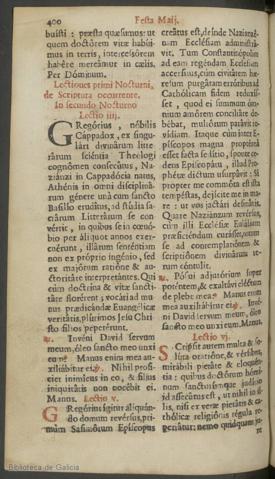 400 Festa Maij.
buisti : præsta quæsumus: ut
quem doctórem vitæ habúi-
mus in terris, intercessórem
habére mereámur in cælis.
Per Dóminum.
Lectiones primi Nocturni,
de Scriptura occurrente.
In secundo Nocturno
Lectio iiij.
GRegórius, nóbilis
Cáppadox, ex singu-
lári divinárum litte-
rárum sciéntia Theólogi
cognómen consecútus, Na-
ziánzi in Cappadócia natus,
Athénis in omni disciplinâ-
rum génere unà cum sancto
Basílio erudítus, ad stúdia sa-
crárum Litterárum se con-
vértit, in quibus se in cœnó-
bio per áliquot annos exer-
cuérunt, illárum senténtiam
non ex próprio ingénio, sed
ex majórum ratióne & au-
ctoritáte interpretántes. Qui
cum doctrína & vitæ sancti-
táte florérent, vocáti ad mu-
nus prædicándæ Evangélicæ
veritátis, plúrimos Jesu Chri-
sto fílios peperérunt.
℟. Invéni David servum
meum, óleo sancto meo unxi
eum: * Manus enim mea au-
xiliábitur ei. ℣. Nihil profi-
ciet inimícus in eo, & fílius
iniquitátis non nocébit ei.
Manus. Lectio v.
GRegórius ígitur aliquán-
do domum revérsus, pri-
mùm Sasimórum Episcopus
creátus est, deínde Naziazé-
nam Ecclésiam administrá-
vit. Tum Constantinópolim
ad eam regéndam Ecclésiam
accersítus, cùm civitátem hæ-
résum purgátam erróribus ad
Cathólicam fidem reduxís-
set, quod ei summum óm-
nium amórem conciliáre de-
bébat, multórum parávit in-
vídiam. Itaque cùm inter E-
píscopos magna proptérea
esset facta sedítio, sponte ce-
dens Episcopátu, illud Pro-
phétæ dictum usurpávit: Si
propter me commóta est ista
tempéstas, dejícite me in ma-
re: ut vos jactári desinátis.
Quare Naziánzum revérsus,
cùm illi Ecclésiæ Eulálium
præficiéndum curásset, totum
se ad contemplatiónem &
scriptiónem divinárum re-
rum cóntulit.
℟. Pósui adjutórium super
poténtem, & exaltávi eléctum
de plebe mea: * Manus enim
mea auxiliábitur ei. ℣. Invé-
ni David servum meum, óleo
sancto meo unxi eum. Manus.
Lectio vj.
SCripsit autem multa & so-
lúta oratióne, & vérsibus,
mirábili pietáte & eloquén-
tia: quibus doctórum hómi-
num sanctorúmque judício
id assecútus est, ut nihil in il-
lis, nisi ex veræ pietátis & ca-
thólicæ religiónis régula re-
periátur: nemo quidquam ju-
Biblioteca de Galicia